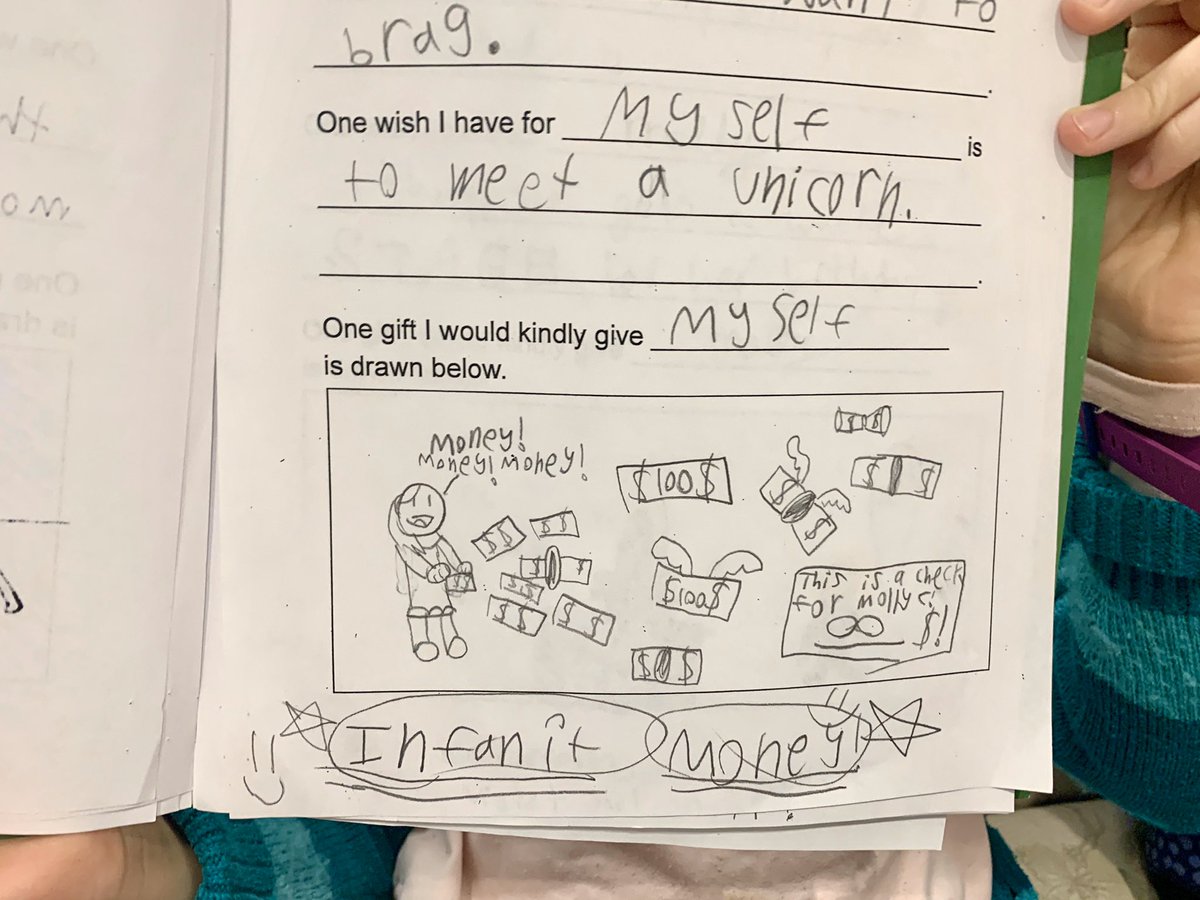 to
brag.
One wish I have for My self is
to meet a unicorn.
One gift I would kindly give My self
is drawn below.
Money!
Money! Money!
$100$
$ $
$ $
$ $
$ $
$ $
$ $
$ $
$ $
$ $
$ $
$100$
$ $
This is a check
for Molly c!
∞ $!
Infanit Money!